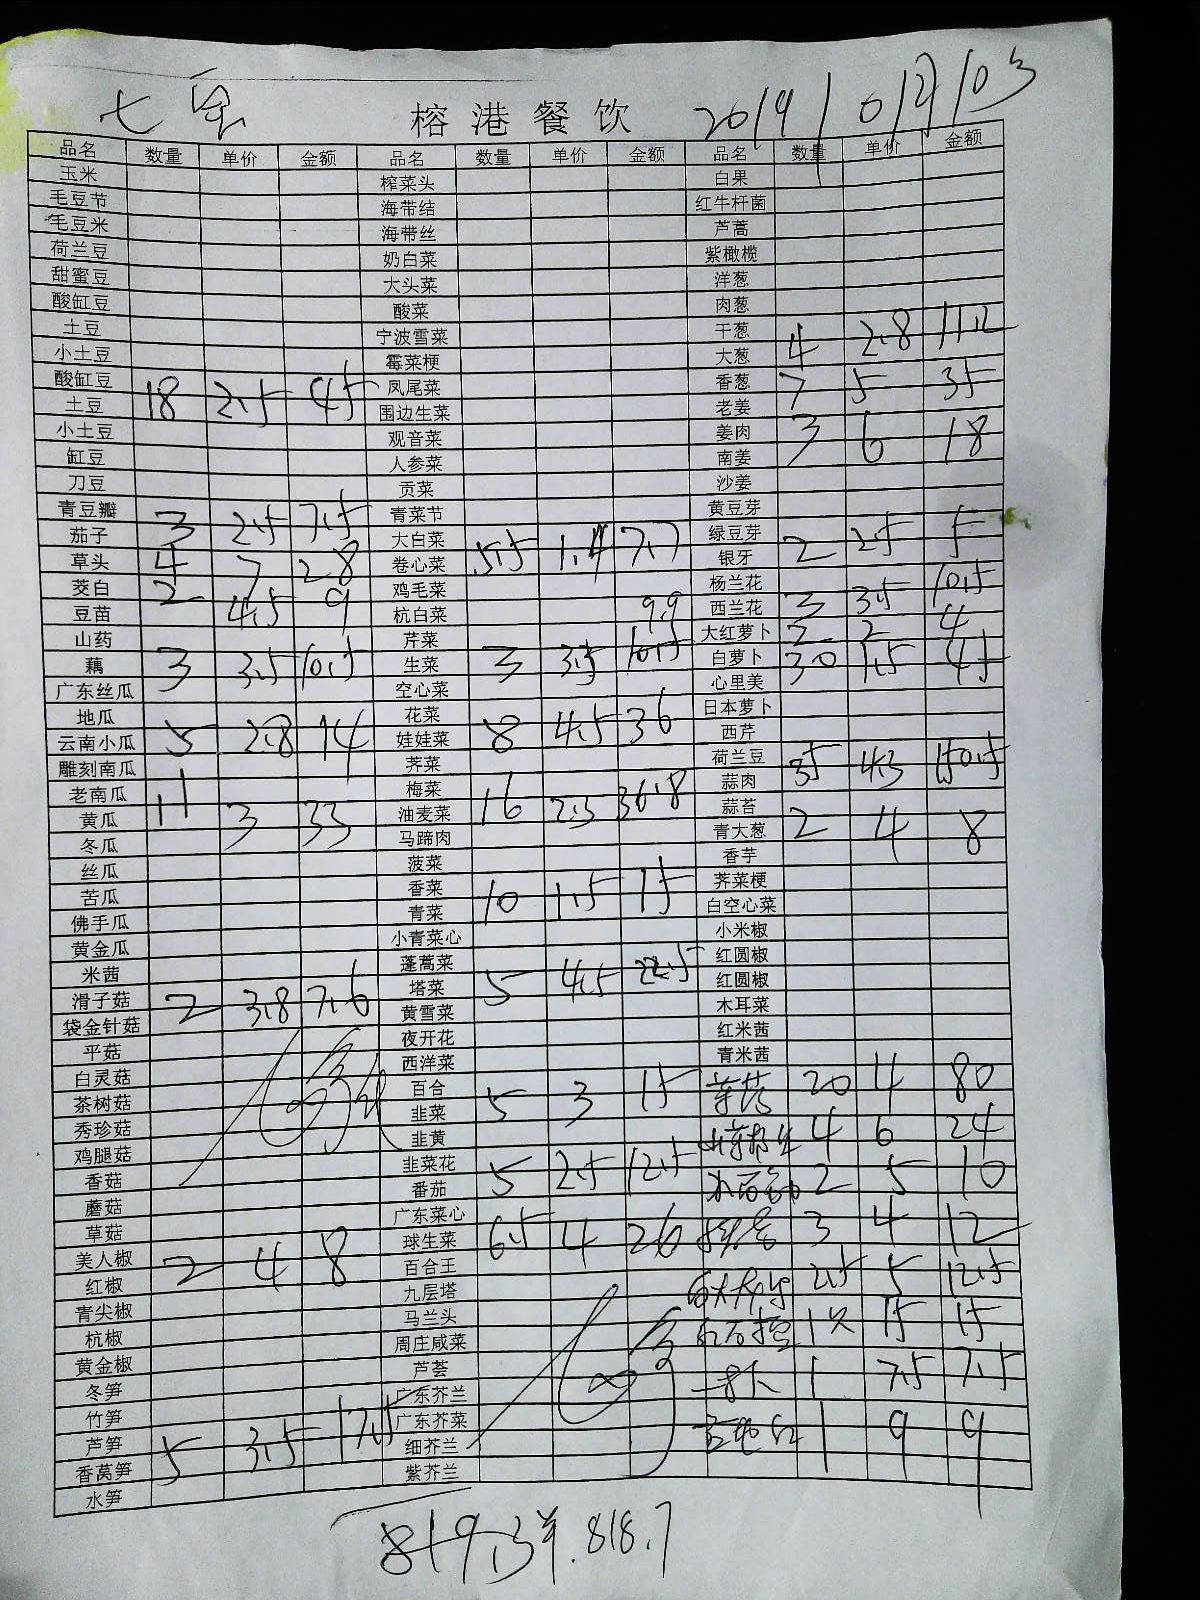 榕港餐饮 2019/10/03
品名 数量 单价 金额 品名 数量 单价 金额 品名 数量 单价 金额
玉米 榨菜头 白果
毛豆节 海带结 红牛杆菌
毛豆米 海带丝 芦蒿
荷兰豆 奶白菜 紫橄榄
甜蜜豆 大头菜 洋葱
酸缸豆 酸菜 肉葱
土豆 宁波雪菜 干葱
小土豆 霉菜梗 大葱 4 2.8 11.2
酸缸豆 凤尾菜 香葱 7 5 35
土豆 18 2.5 45 围边生菜 老姜
小土豆 观音菜 姜肉 3 6 18
缸豆 人参菜 南姜
刀豆 贡菜 沙姜
青豆瓣 青菜节 黄豆芽
茄子 3 2.5 7.5 大白菜 5.5 1.4 7.7 绿豆芽
草头 4 7 28 卷心菜 银牙 2 2.5 5
茭白 2 4.5 9 鸡毛菜 杨兰花
豆苗 杭白菜 9.9 西兰花 3 3.5 10.5
山药 芹菜 大红萝卜 2 2 4
藕 3 3.5 10.5 生菜 3 3.5 10.5 白萝卜 30 1.5 45
广东丝瓜 空心菜 心里美
地瓜 花菜 日本萝卜
云南小瓜 5 2.8 14 娃娃菜 8 4.5 36 西芹
雕刻南瓜 荠菜 荷兰豆
老南瓜 梅菜 蒜肉 35 4.3 150.5
黄瓜 11 3 33 油麦菜 16 2.3 36.8 蒜苔
冬瓜 马蹄肉 青大葱 2 4 8
丝瓜 菠菜 香芋
苦瓜 香菜 荠菜梗
佛手瓜 青菜 10 1.5 15 白空心菜
黄金瓜 小青菜心 小米椒
米茜 蓬蒿菜 红圆椒
滑子菇 2 3.8 7.6 塔菜 5 4.5 22.5 红圆椒
袋金针菇 黄雪菜 木耳菜
平菇 夜开花 红米茜
白灵菇 西洋菜 青米茜
茶树菇 百合 5 3 15 20 4 80
秀珍菇 韭菜
鸡腿菇 韭黄 4 6 24
香菇 韭菜花
蘑菇 番茄 5 2.5 12.5 2 5 10
草菇 广东菜心
美人椒 球生菜 6.5 4 26 3 4 12
红椒 2 4 8 百合王
青尖椒 九层塔 2.5 5 12.5
杭椒 马兰头 1 15 15
黄金椒 周庄咸菜
冬笋 芦荟 1 7.5 7.5
竹笋 广东芥兰
芦笋 广东芥菜 1 9 9
香莴笋 5 3.5 17.5 细芥兰
水笋 紫芥兰
819.3 818.7